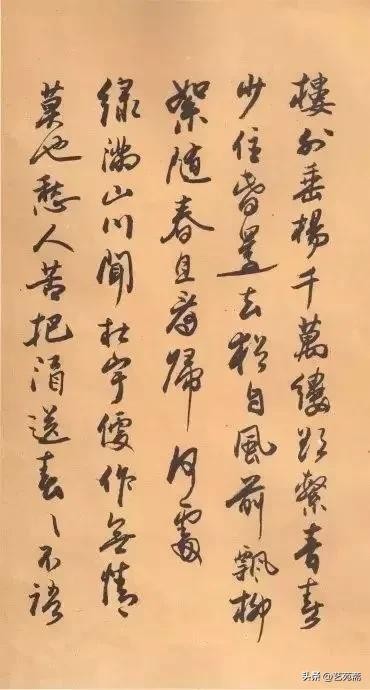 樓外垂楊千萬縷欲繫青春
少住旾還去猶自風前飄柳
絮隨春且看歸何處
綠滿山川聞杜宇便作無情
莫也愁人苦把酒送春〻不語
头条 @艺苑斋